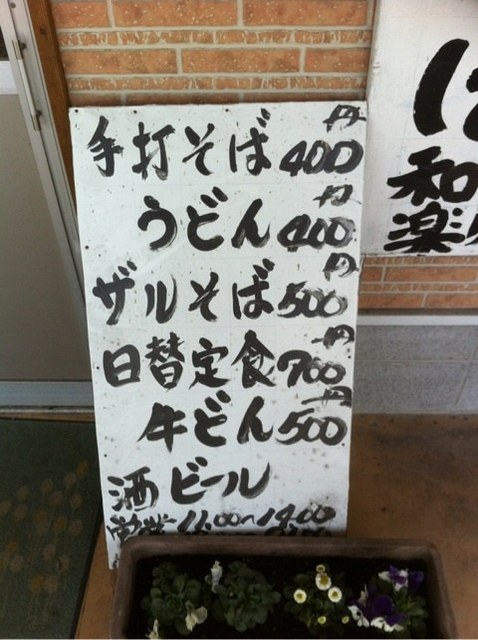 手打そば 400円
うどん 400円
ザルそば 500円
日替定食 700円
牛どん 500円
酒 ビール
営業 11:00〜14:00
和
楽